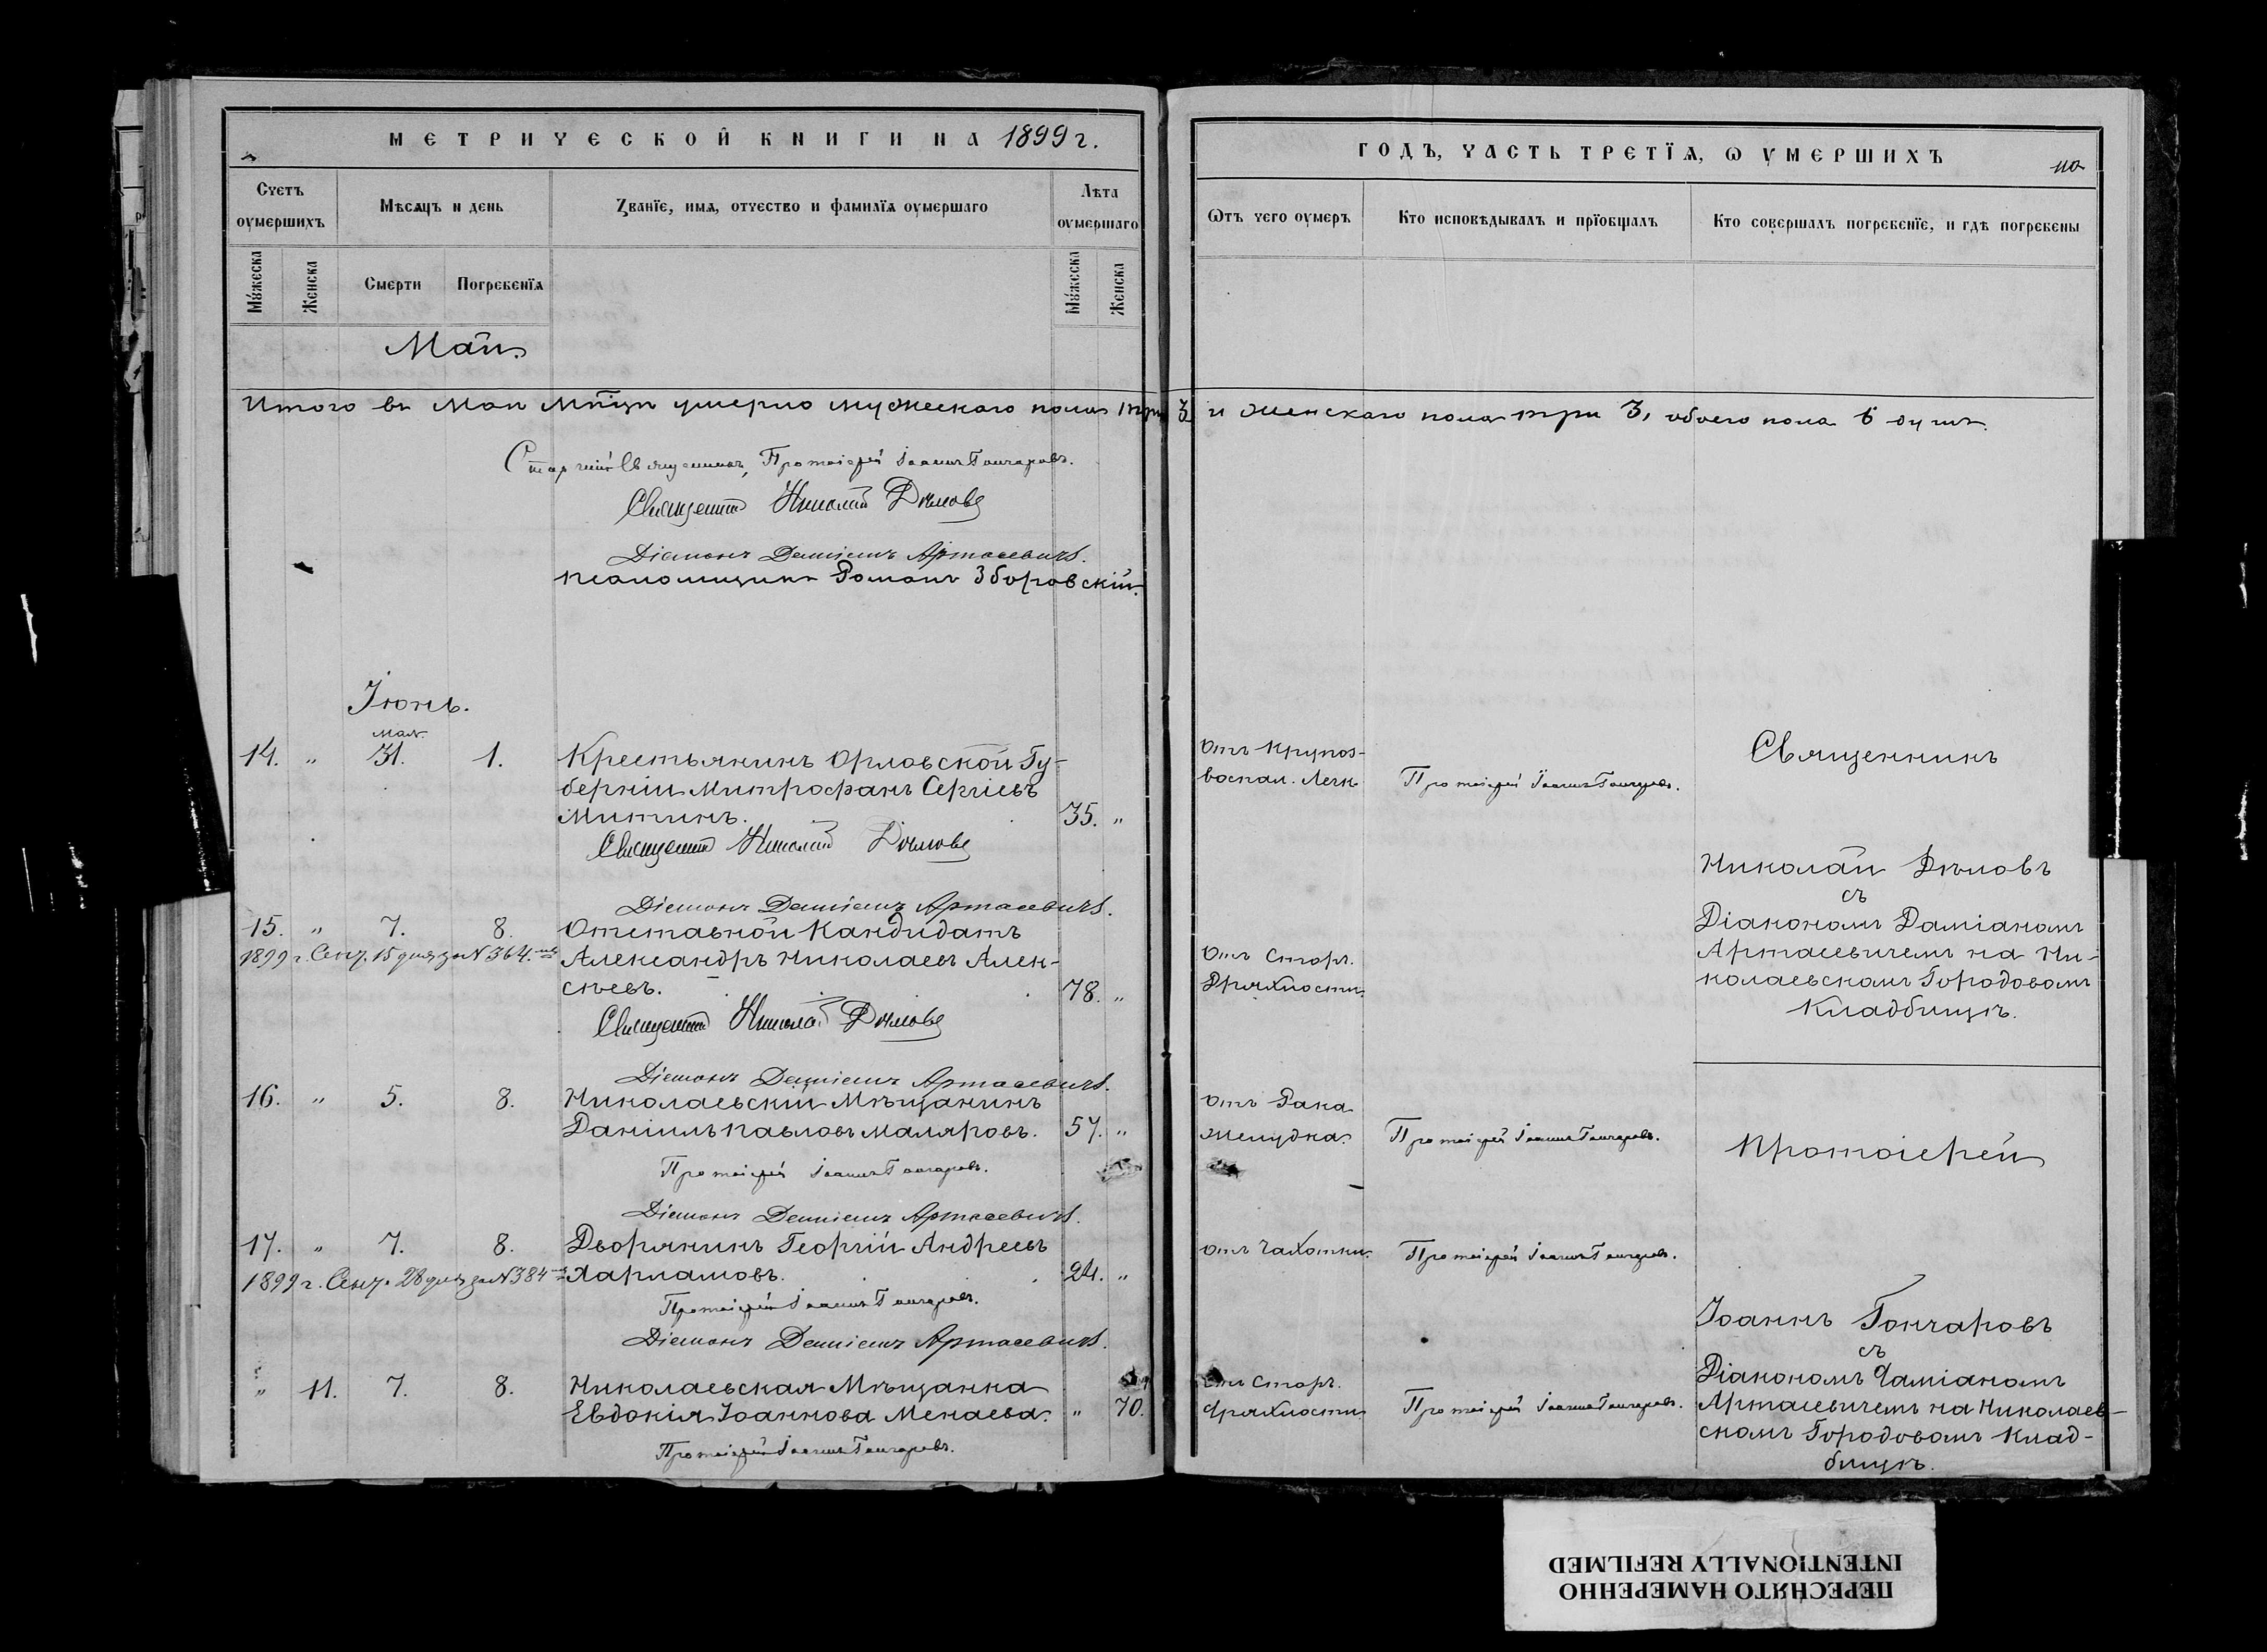 МЕТРИЧЕСКОЙ КНИГИ НА 1899 г.
Счетъ оумершихъ
Мѣсяцъ и день
Званїе, имя, отчество и фамилїя оумершаго
Лѣта оумершаго
Мꙋжеска
Женска
Смерти
Погребенїя
Мꙋжеска
Женска
Май.
Итого въ Маѣ Мѣцѣ умерло мужескаго пола три 3
Старшій Священникъ, Протоіерей Іоаннъ Гончаровъ.
Священникъ Николай Дѣловъ
Діаконъ Даміанъ Артасевичъ.
Псаломщикъ Романъ Зборовскій.
Іюнь.
Мая.
14. " 31. 1. Крестьянинъ Орловской Гу-
берніи Митрофанъ Сергіевъ
Митинъ. 35. "
Священникъ Николай Дѣловъ
Діаконъ Даміанъ Артасевичъ.
15. " 7. 8. Отставной Кандидатъ
1899 г. Сент. 15 дня за № 364. Александръ Николаевъ Алек-
сѣевъ. 78. "
Священникъ Николай Дѣловъ
Діаконъ Даміанъ Артасевичъ.
16. " 5. 8. Николаевскій Мѣщанинъ
Даніилъ Павловъ Маляровъ. 57. "
Протоіерей Іоаннъ Гончаровъ.
Діаконъ Даміанъ Артасевичъ.
17. " 7. 8. Дворянинъ Георгій Андреевъ
1899 г. Сент. 28 дня за № 384 Харламовъ. 24. "
Протоіерей Іоаннъ Гончаровъ.
Діаконъ Даміанъ Артасевичъ.
" 11. 7. 8. Николаевская Мѣщанка
Евдокія Іоаннова Менаева. " 70.
Протоіерей Іоаннъ Гончаровъ.
ГОДЪ, ЧАСТЬ ТРЕТЇѦ, Ѡ ѸМЕРШИХЪ
Ѿтъ чего оумеръ
Кто исповѣдывалъ и прїобщалъ
Кто совершалъ погребенїе, и гдѣ погребены
и женскаго пола три 3, обоего пола 6 душъ.
Отъ крупоз-
воспал. Легк.
Протоіерей Іоаннъ Гончаровъ.
Священникъ
Николай Дѣловъ
съ
Діакономъ Даміаномъ
Артасевичемъ на Ни-
колаевскомъ Городовомъ
Кладбищѣ.
Отъ Старч.
Дряхлости.
Отъ Рака
Желудка.
Протоіерей Іоаннъ Гончаровъ.
Протоіерей
отъ Чахотки.
Протоіерей Іоаннъ Гончаровъ.
Іоаннъ Гончаровъ
съ
Діакономъ Даміаномъ
Артасевичемъ на Николаев-
скомъ Городовомъ Клад-
бищѣ.
отъ Старч.
дряхлости.
Протоіерей Іоаннъ Гончаровъ.
ПЕРЕСНЯТО НАМЕРЕННО
INTENTIONALLY REFILMED